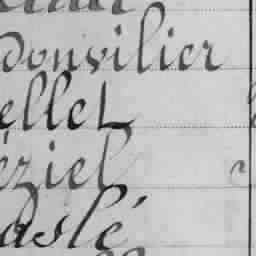 donvilier
ellet
éziel
aslé